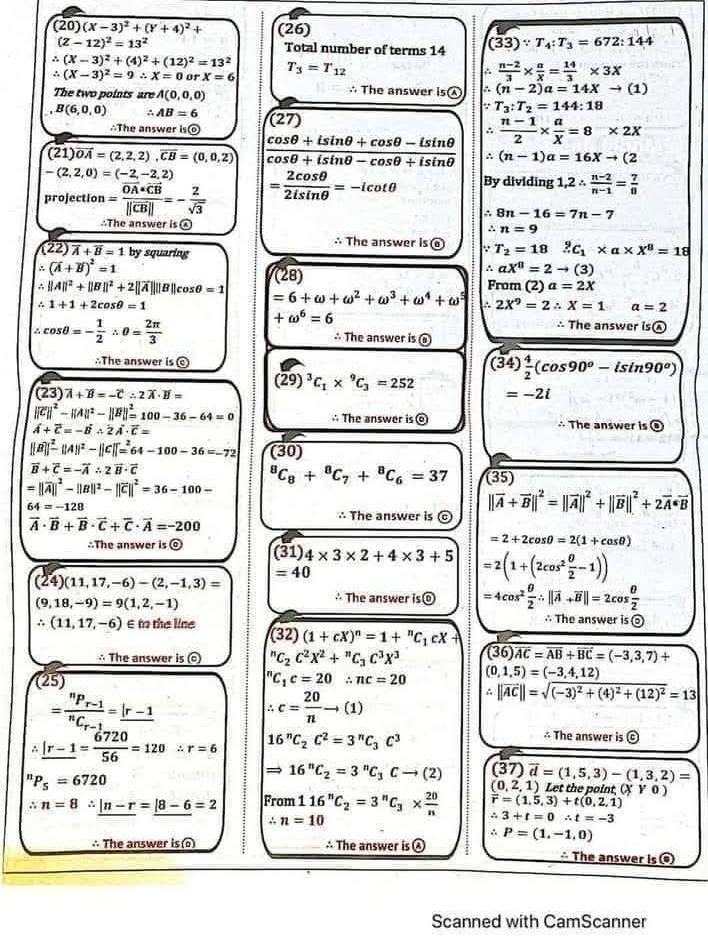 (20)(X − 3)² + (Y + 4)² +
(Z − 12)² = 13²
∴ (X − 3)² + (4)² + (12)² = 13²
∴ (X − 3)² = 9 ∴ X = 0 or X = 6
The two points are A(0,0,0)
, B(6,0,0) ∴ AB = 6
∴The answer is Ⓓ
(21)OA = (2,2,2) , CB = (0,0,2)
− (2,2,0) = (−2,−2,2)
projection = OA•CB / ||CB|| = − 2/√3
∴The answer is Ⓐ
(22) A + B = 1 by squaring
∴ (A + B)² = 1
∴ ||A||² + ||B||² + 2||A||||B||cosθ = 1
∴ 1 + 1 + 2cosθ = 1
∴ cosθ = − 1/2 ∴ θ = 2π/3
∴The answer is Ⓒ
(23) A + B = −C ∴ 2 A · B =
||C||² − ||A||² − ||B||² = 100 − 36 − 64 = 0
A + C = −B ∴ 2 A · C =
||B||² − ||A||² − ||C||² = 64 − 100 − 36 = −72
B + C = −A ∴ 2 B · C
= ||A||² − ||B||² − ||C||² = 36 − 100 −
64 = −128
A · B + B · C + C · A = −200
∴The answer is Ⓓ
(24)(11,17,−6) − (2,−1,3) =
(9,18,−9) = 9(1,2,−1)
∴ (11,17,−6) ∈ to the line
∴ The answer is Ⓒ
(25)
= ⁿPr−1 / ⁿCr−1 = |r − 1
∴ |r − 1 = 6720/56 = 120 ∴ r = 6
ⁿP₅ = 6720
∴ n = 8 ∴ |n − r = |8 − 6 = 2
∴ The answer is
(26)
Total number of terms 14
T₃ = T₁₂
∴ The answer is Ⓐ
(27)
cosθ + isinθ + cosθ − isinθ
cosθ + isinθ − cosθ + isinθ
= 2cosθ / 2isinθ = −icotθ
∴ The answer is Ⓑ
(28)
= 6 + ω + ω² + ω³ + ω⁴ + ω⁵
+ ω⁶ = 6
∴ The answer is Ⓑ
(29) ³C₁ × ⁹C₃ = 252
∴ The answer is Ⓓ
(30)
⁸C₈ + ⁸C₇ + ⁸C₆ = 37
∴ The answer is Ⓒ
(31)4 × 3 × 2 + 4 × 3 + 5
= 40
∴ The answer is Ⓓ
(32) (1 + cX)ⁿ = 1 + ⁿC₁ cX +
ⁿC₂ C²X² + ⁿC₃ C³X³
ⁿC₁ c = 20 ∴ nc = 20
∴ c = 20/n → (1)
16 ⁿC₂ C² = 3 ⁿC₃ C³
⇒ 16 ⁿC₂ = 3 ⁿC₃ C → (2)
From 1 16 ⁿC₂ = 3 ⁿC₃ × 20/n
∴ n = 10
∴ The answer is Ⓐ
(33) ∵ T₄:T₃ = 672:144
∴ n−2/3 × a/X = 14/3 × 3X
∴ (n − 2)a = 14X → (1)
∵ T₃:T₂ = 144:18
∴ n − 1/2 × a/X = 8 × 2X
∴ (n − 1)a = 16X → (2
By dividing 1,2 ∴ n−2/n−1 = 7/8
∴ 8n − 16 = 7n − 7
∴ n = 9
∵ T₂ = 18 ⁹C₁ × a × X⁸ = 18
∴ aX⁸ = 2 → (3)
From (2) a = 2X
∴ 2X⁹ = 2 ∴ X = 1 a = 2
∴ The answer is Ⓐ
(34) 4/2 (cos90° − isin90°)
= −2i
∴ The answer is Ⓑ
(35)
||A + B||² = ||A||² + ||B||² + 2A•B
= 2 + 2cosθ = 2(1 + cosθ)
= 2(1 + (2cos² θ/2 − 1))
= 4cos² θ/2 ∴ ||A + B|| = 2cos θ/2
∴ The answer is Ⓓ
(36)AC = AB + BC = (−3,3,7) +
(0,1,5) = (−3,4,12)
∴ ||AC|| = √(−3)² + (4)² + (12)² = 13
∴ The answer is Ⓒ
(37) d = (1,5,3) − (1,3,2) =
(0,2,1) Let the point, (X Y 0)
r = (1,5,3) + t(0,2,1)
∴ 3 + t = 0 ∴ t = −3
∴ P = (1,−1,0)
∴ The answer is Ⓑ
Scanned with CamScanner